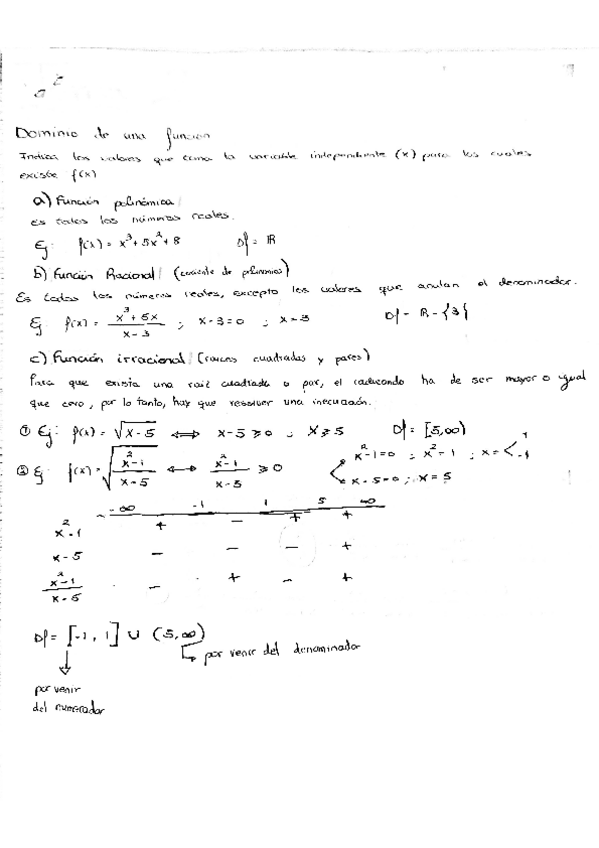 Dominio de una función
Indica los valores que toma la variable independiente (x) para los cuales
existe f(x)
a) Función polinómica:
Es todos los números reales.
Ej: f(x) = x³ + 5x² + 8 Df = ℝ
b) Función Racional: (cociente de polinomios)
Es todos los números reales, excepto los valores que anulan el denominador.
Ej f(x) = (x³ + 5x)/(x - 3) ; x - 3 = 0 ; x = 3 Df = ℝ - {3}
c) Función irracional: (raíces cuadradas y pares)
Para que exista una raíz cuadrada o par, el radicando ha de ser mayor o igual
que cero, por lo tanto, hay que resolver una inecuación.
① Ej: f(x) = √(x - 5) ⟺ x - 5 ⩾ 0 ; x ⩾ 5 Df = [5, ∞)
② Ej: f(x) = √((x² - 1)/(x - 5)) ⟺ (x² - 1)/(x - 5) ⩾ 0 < x² - 1 = 0 ; x² = 1 ; x = < 1 -1
x - 5 = 0 ; x = 5
-∞ -1 1 5 ∞
x² - 1 + - + +
x - 5 - - - +
(x² - 1)/(x - 5) - + - +
Df = [-1, 1] ∪ (5, ∞)
↳ por venir del denominador
por venir
del numerador